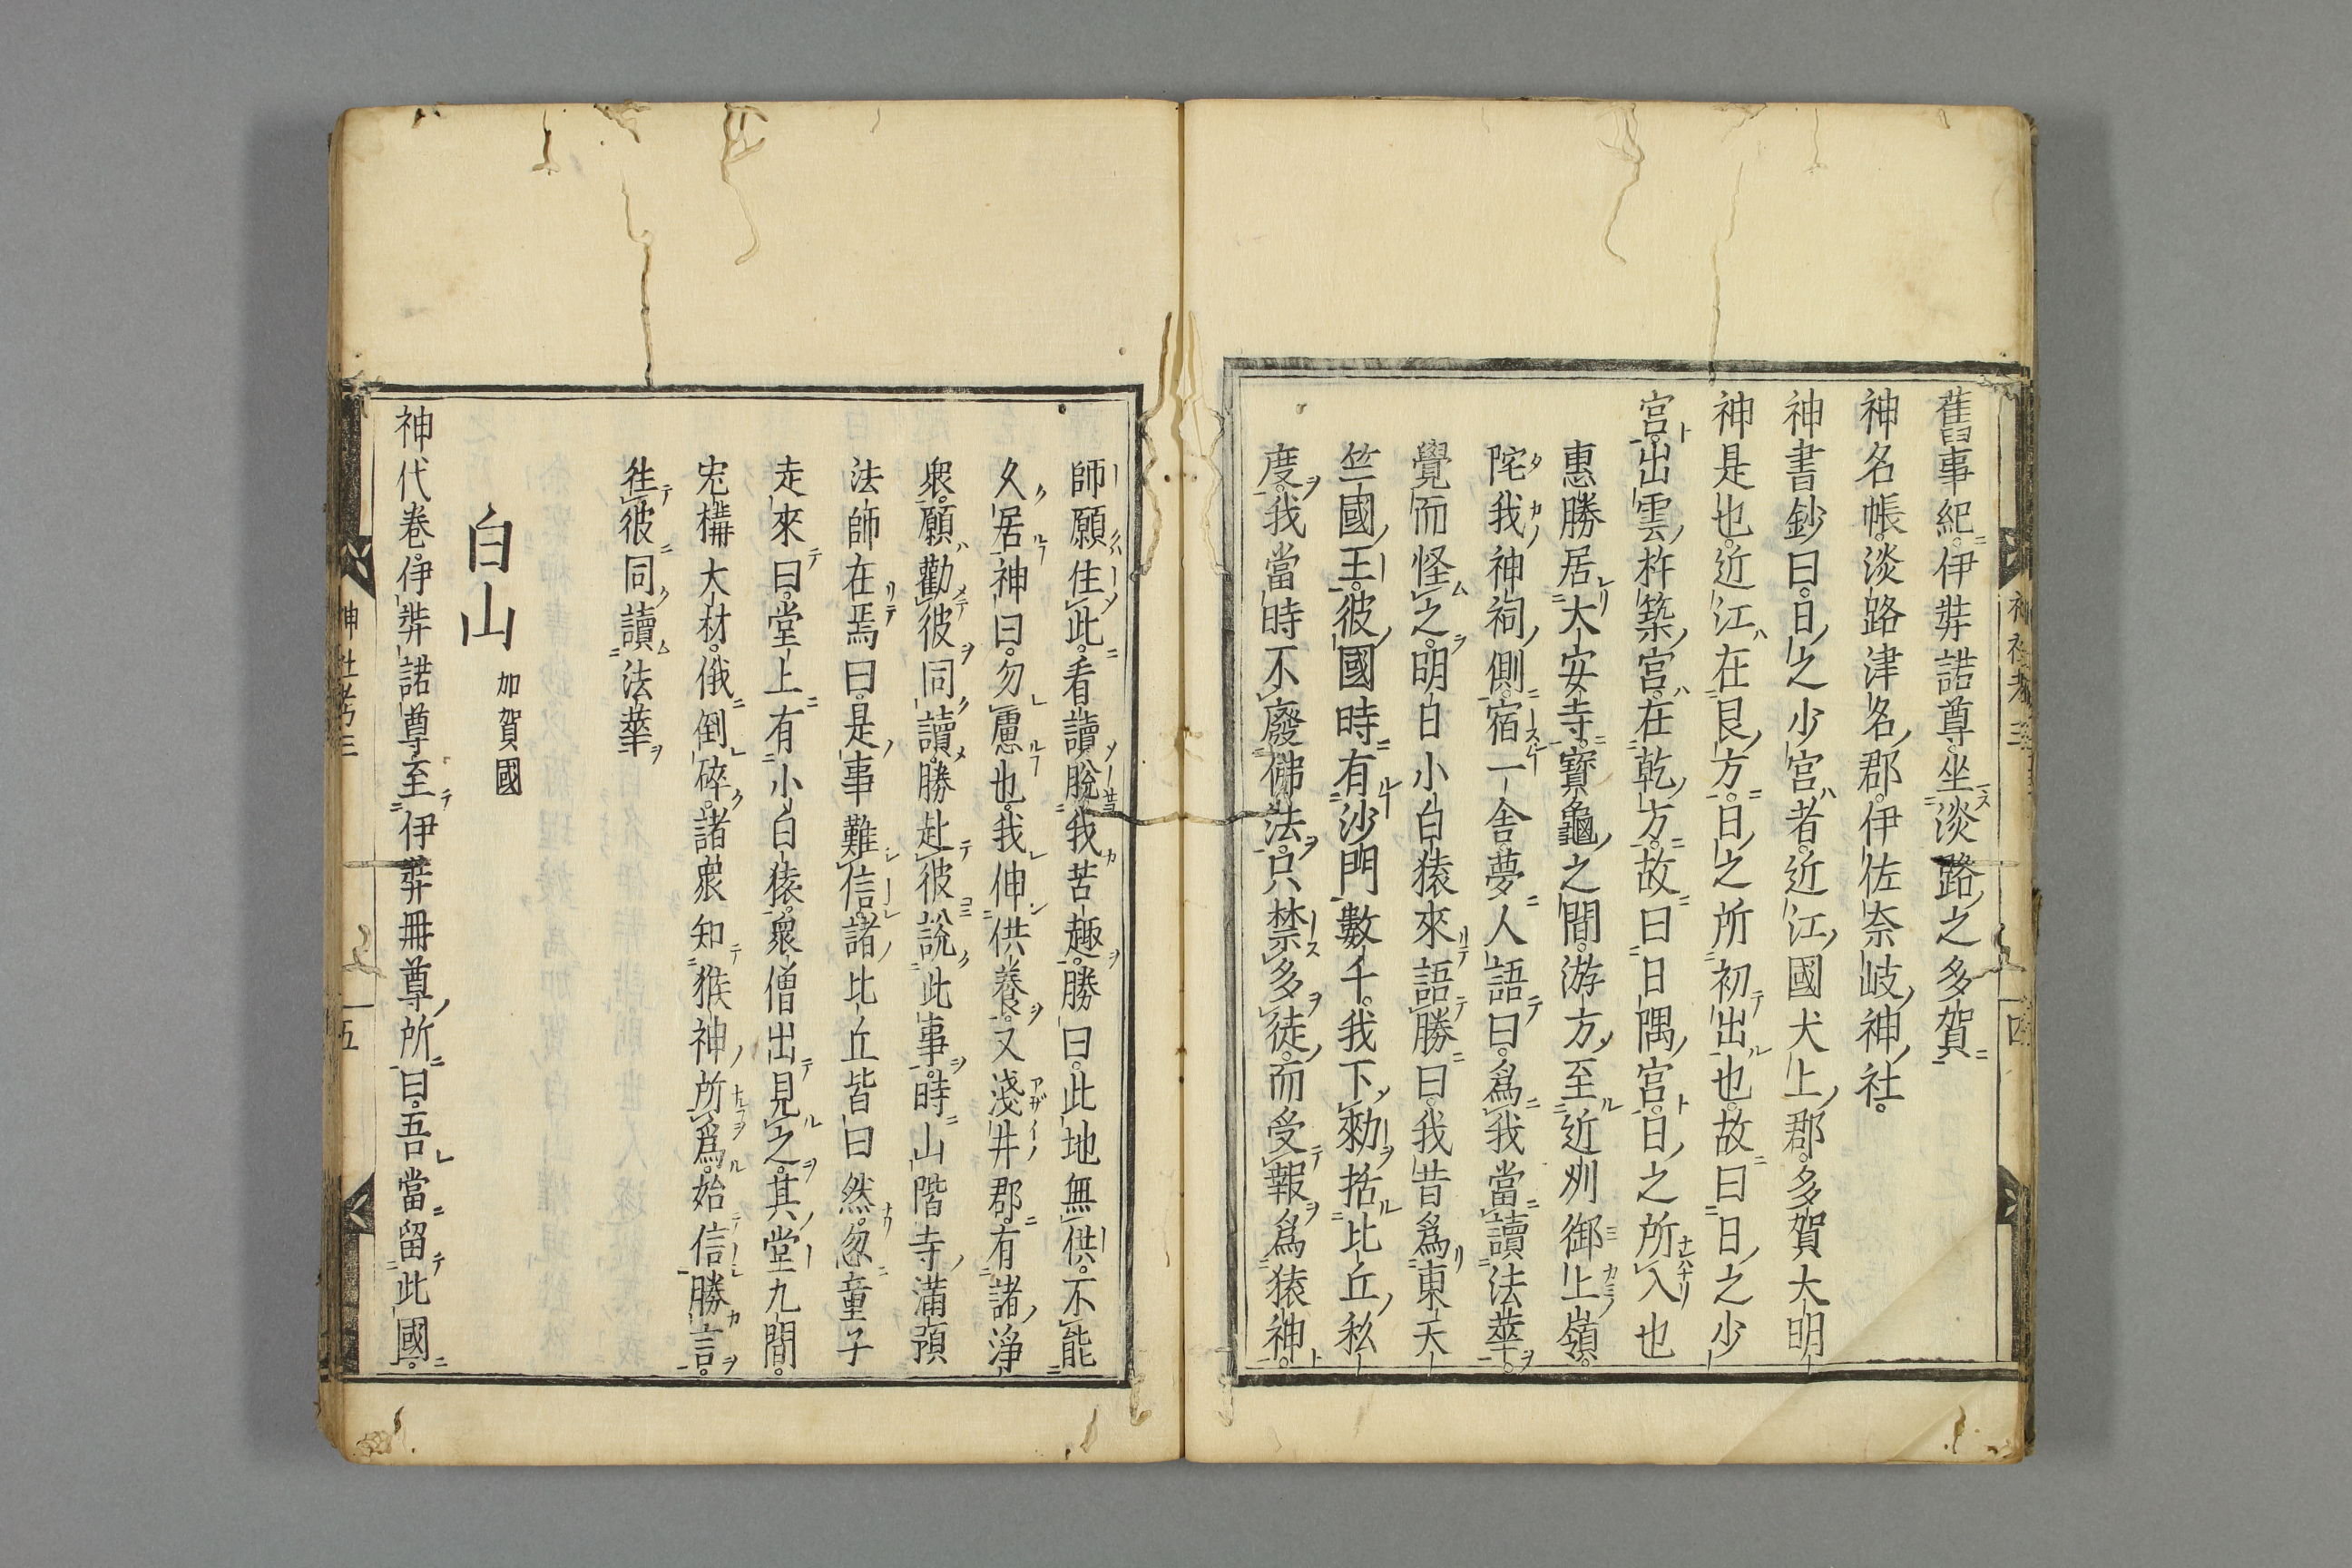 舊事紀伊弉諾尊坐淡路之多賀
神名帳淡路津名郡伊佐奈岐神社
神書鈔曰日之少宮者近江國犬上郡多賀大明
神是也近江在艮方日之所初出也故曰日之少
宮出雲杵築宮在乾方故曰日隅宮日之所入也
惠勝居大安寺寶龜之間游方至近州御上嶺
陀我神祠側宿一舎夢人語曰爲我當讀法華
覺而怪之明日小白猿來語勝曰我昔爲東天
竺國王彼國時有沙門數千我下勑括比丘私
度我當時不廢佛法只禁多徒而受報爲猿神
神社考三
四
師願住此看讀脫我苦趣勝曰此地無供不能
久居神曰勿慮也我伸供養又淺井郡有諸淨
衆願勸彼同讀勝赴彼說此事時山階寺滿預
法師在焉曰是事難信諸比丘皆曰然忽童子
走來曰堂上有小白猿衆僧出見之其堂九間
宏構大材俄倒碎諸衆知猴神所爲始信勝言
徃彼同讀法華
白山 加賀國
神代卷伊弉諾尊至伊弉冊尊所曰吾當留此國
神社考三
五